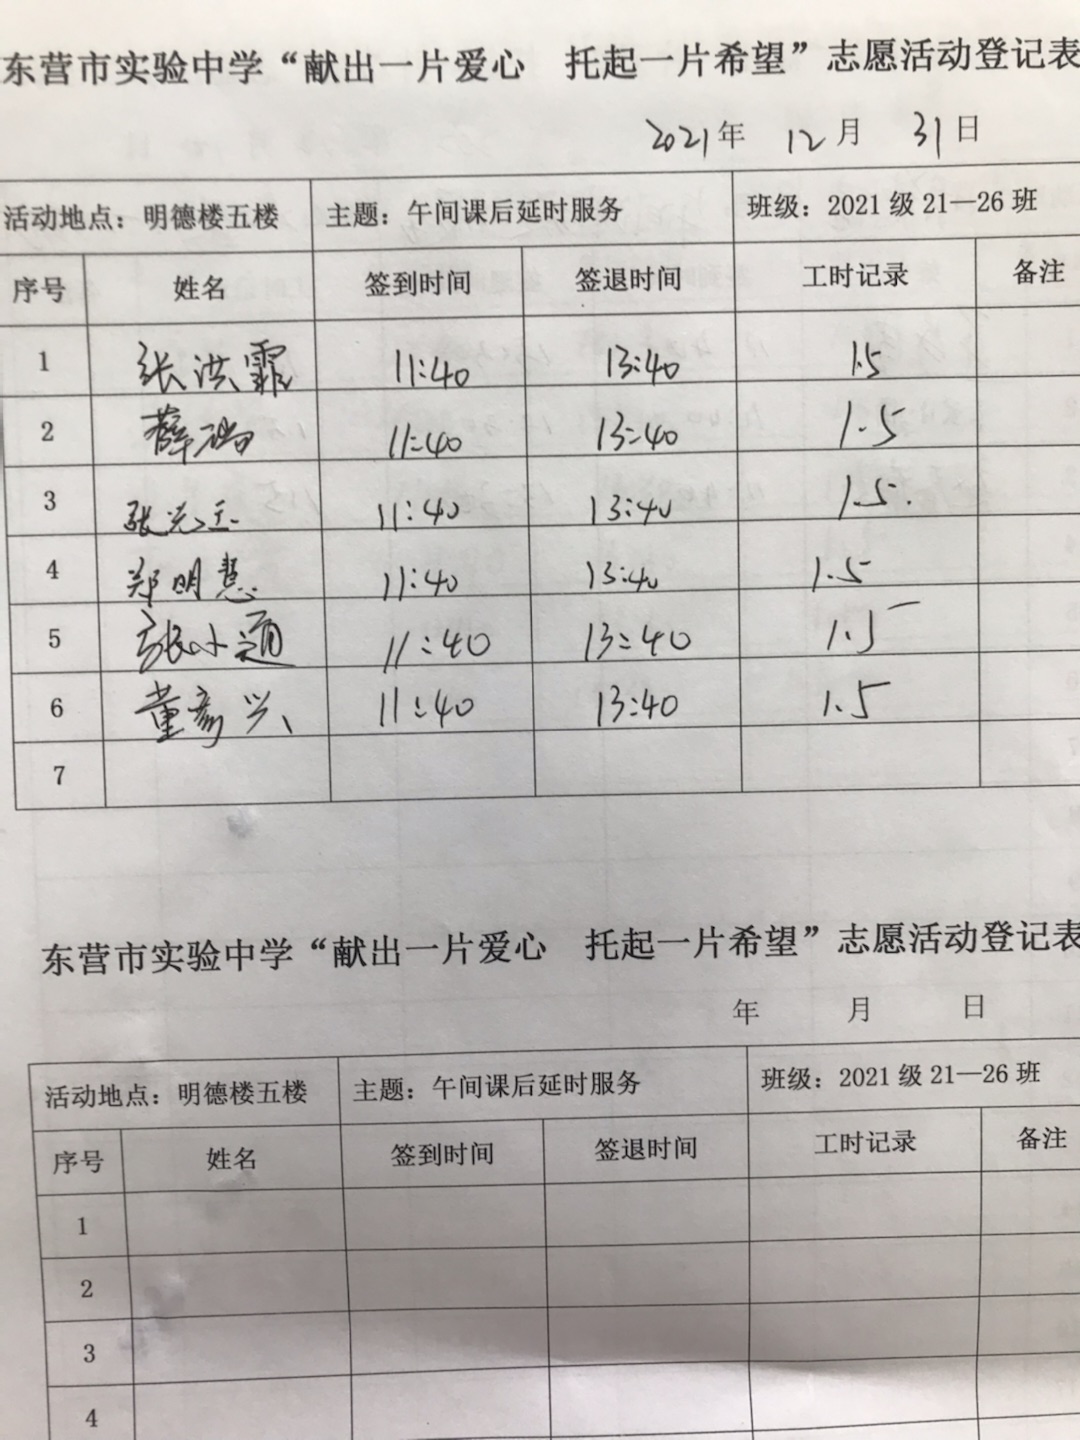 东营市实验中学“献出一片爱心 托起一片希望”志愿活动登记表
2021年 12月 31日
活动地点：明德楼五楼 主题：午间课后延时服务 班级：2021级21—26班
序号 姓名 签到时间 签退时间 工时记录 备注
1 张洪霏 11:40 13:40 1.5
2 薛瑞 11:40 13:40 1.5
3 张 11:40 13:40 1.5
4 郑明慧 11:40 13:40 1.5
5 张小通 11:40 13:40 1.5
6 董彦兴 11:40 13:40 1.5
7
东营市实验中学“献出一片爱心 托起一片希望”志愿活动登记表
年 月 日
活动地点：明德楼五楼 主题：午间课后延时服务 班级：2021级21—26班
序号 姓名 签到时间 签退时间 工时记录 备注
1
2
3
4